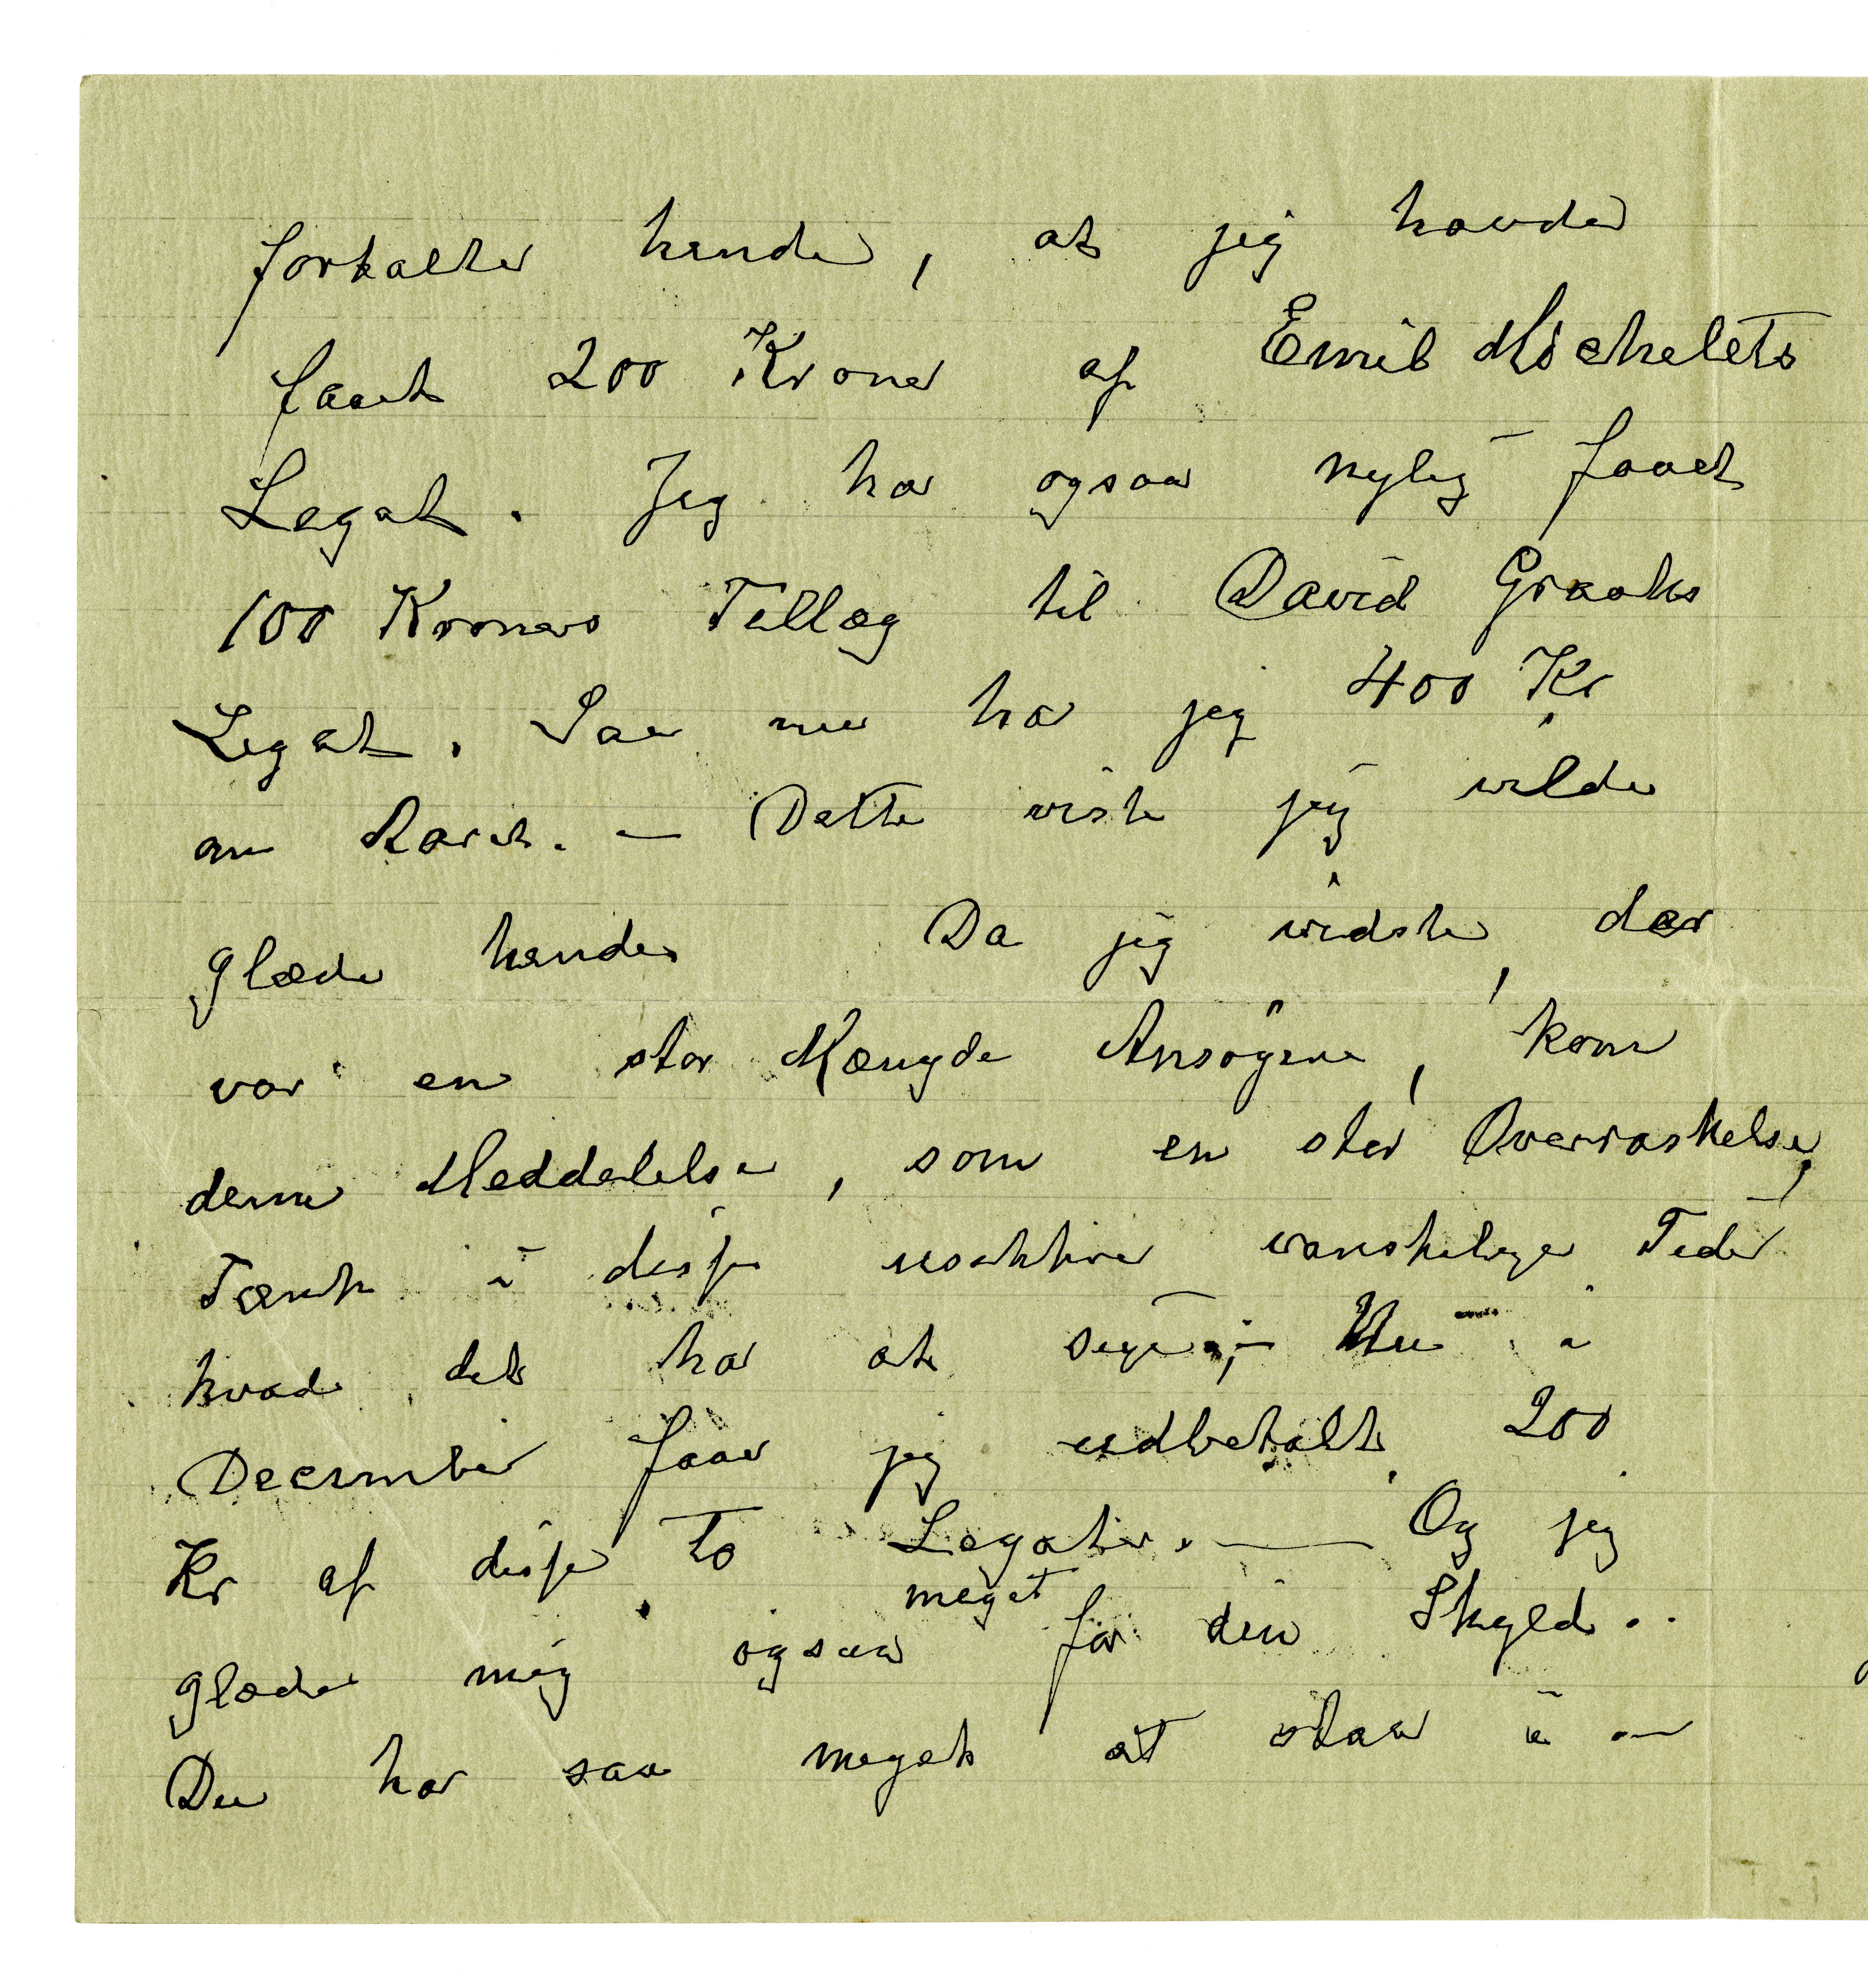 fortalte hende, at jeg havde
faaet 200 Kroner af Emil Michelets
Legat. Jeg har ogsaa nylig faaet
100 Kroners Tillæg til David Graahs
Legat. Saa nu har jeg 400 Kr
om Aaret. — Dette viste jeg vilde
glæde hende Da jeg vidste, der
var en stor Mængde Ansøgere, kom
denne Meddelelse, som en stor Overraskelse,
Tænk i disse usikkre vanskelige Tider
hvad det har at sige, — Nu i
December faar jeg udbetalt 200
Kr af disse to Legater. — Og jeg
glæder mig ogsaa meget for din Skyld..
Du har saa meget at staa i —